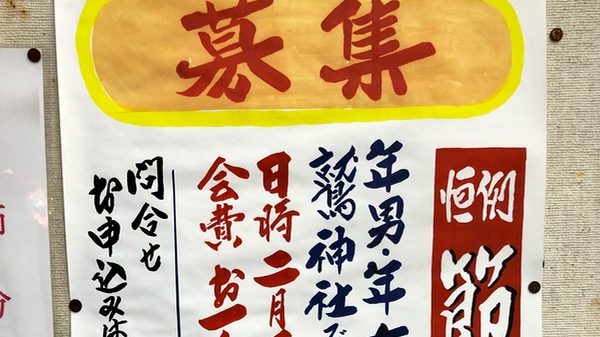 募集
恒例
節
年男・年女
鷲神社で
日時 二月
会費 お一
問合せ
お申込みは